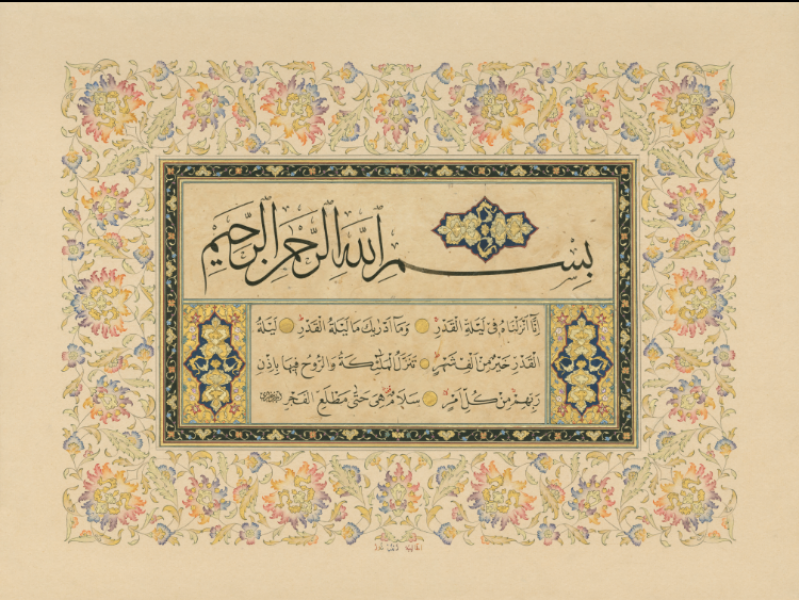 بِسْمِ اللهِ الرَّحْمٰنِ الرَّحِيْمِ
اِنَّا اَنْزَلْنَاهُ فِى لَيْلَةِ الْقَدْرِ وَمَا اَدْرٰيكَ مَا لَيْلَةُ الْقَدْرِ لَيْلَةُ
الْقَدْرِ خَيْرٌ مِنْ اَلْفِ شَهْرٍ تَنَزَّلُ الْمَلٰئِكَةُ وَالرُّوحُ فِيهَا بِاِذْنِ
رَبِّهِمْ مِنْ كُلِّ اَمْرٍ سَلَامٌ هِىَ حَتّٰى مَطْلَعِ الْفَجْرِ